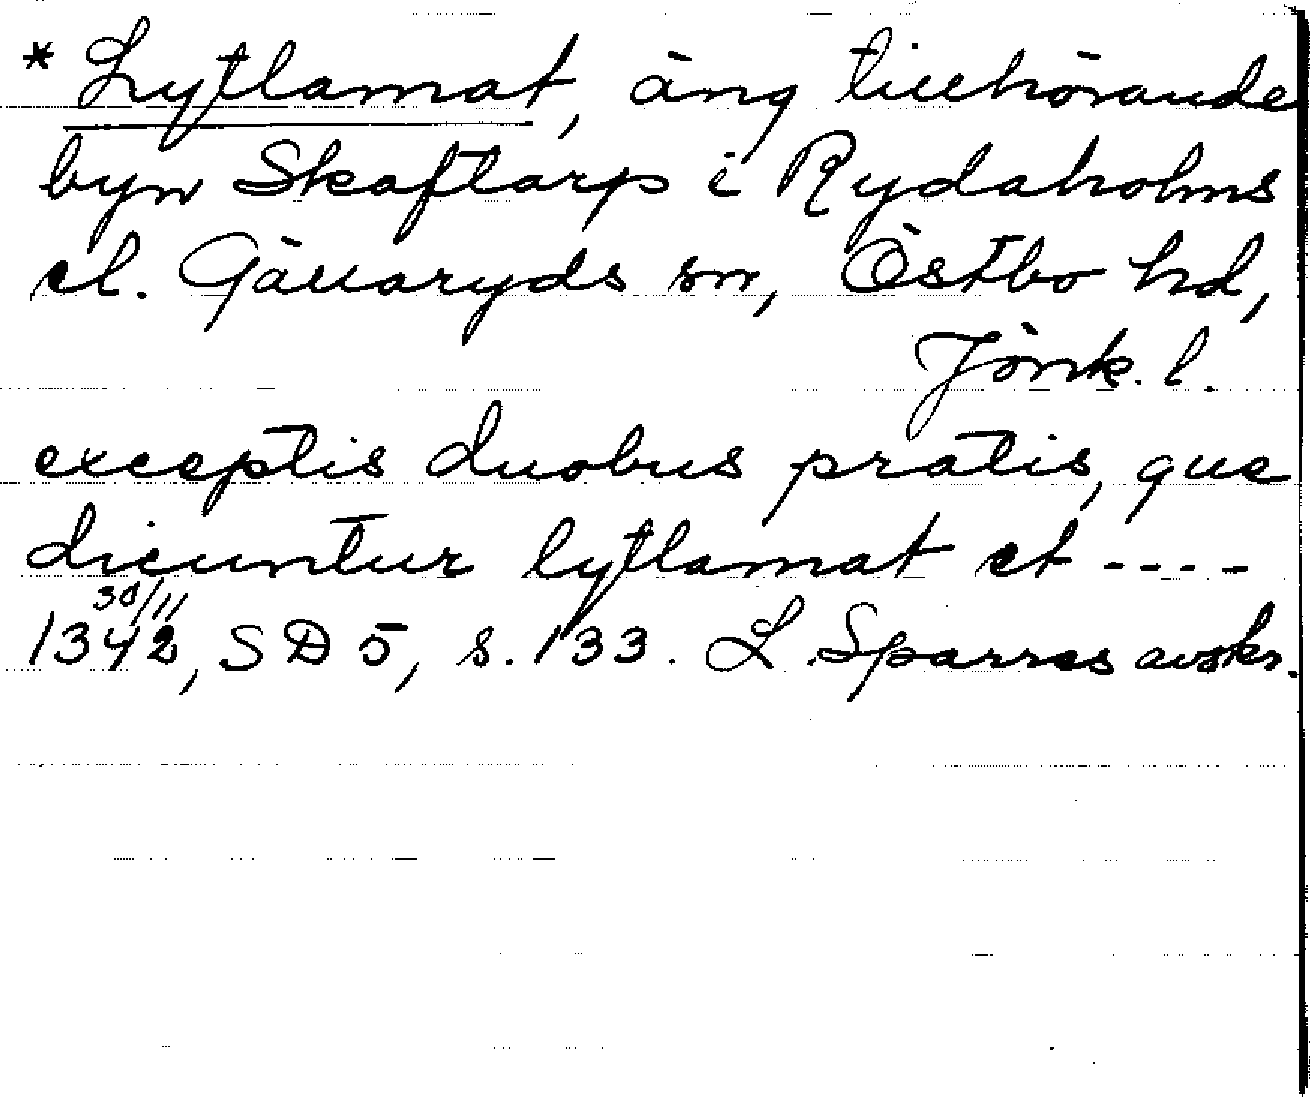 * Lytlamat, äng tillhörande
byn Skaftarp i Rydaholms
el. Gällaryds snr, Östbo hd,
Jönk. l.
exceptis duobus pratis, que
dicuntur lytlamat et ----
30/11
1342, SD 5, s. 133. L Sparres avskr.